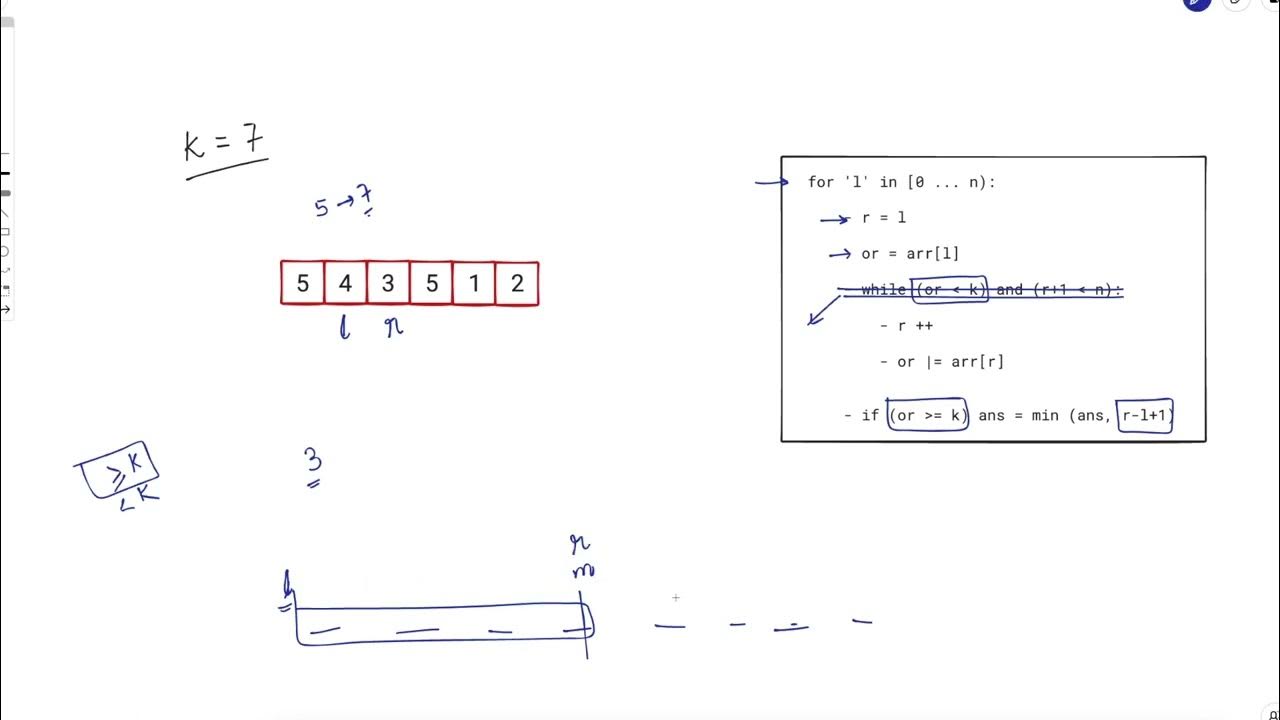 k = 7
5 → 7
5 4 3 5 1 2
l r
for 'l' in [0 ... n):
r = l
or = arr[l]
while (or < k) and (r+1 < n):
- r ++
- or |= arr[r]
- if (or >= k) ans = min (ans, r-l+1)
≥ K
< K
3
r
m
l